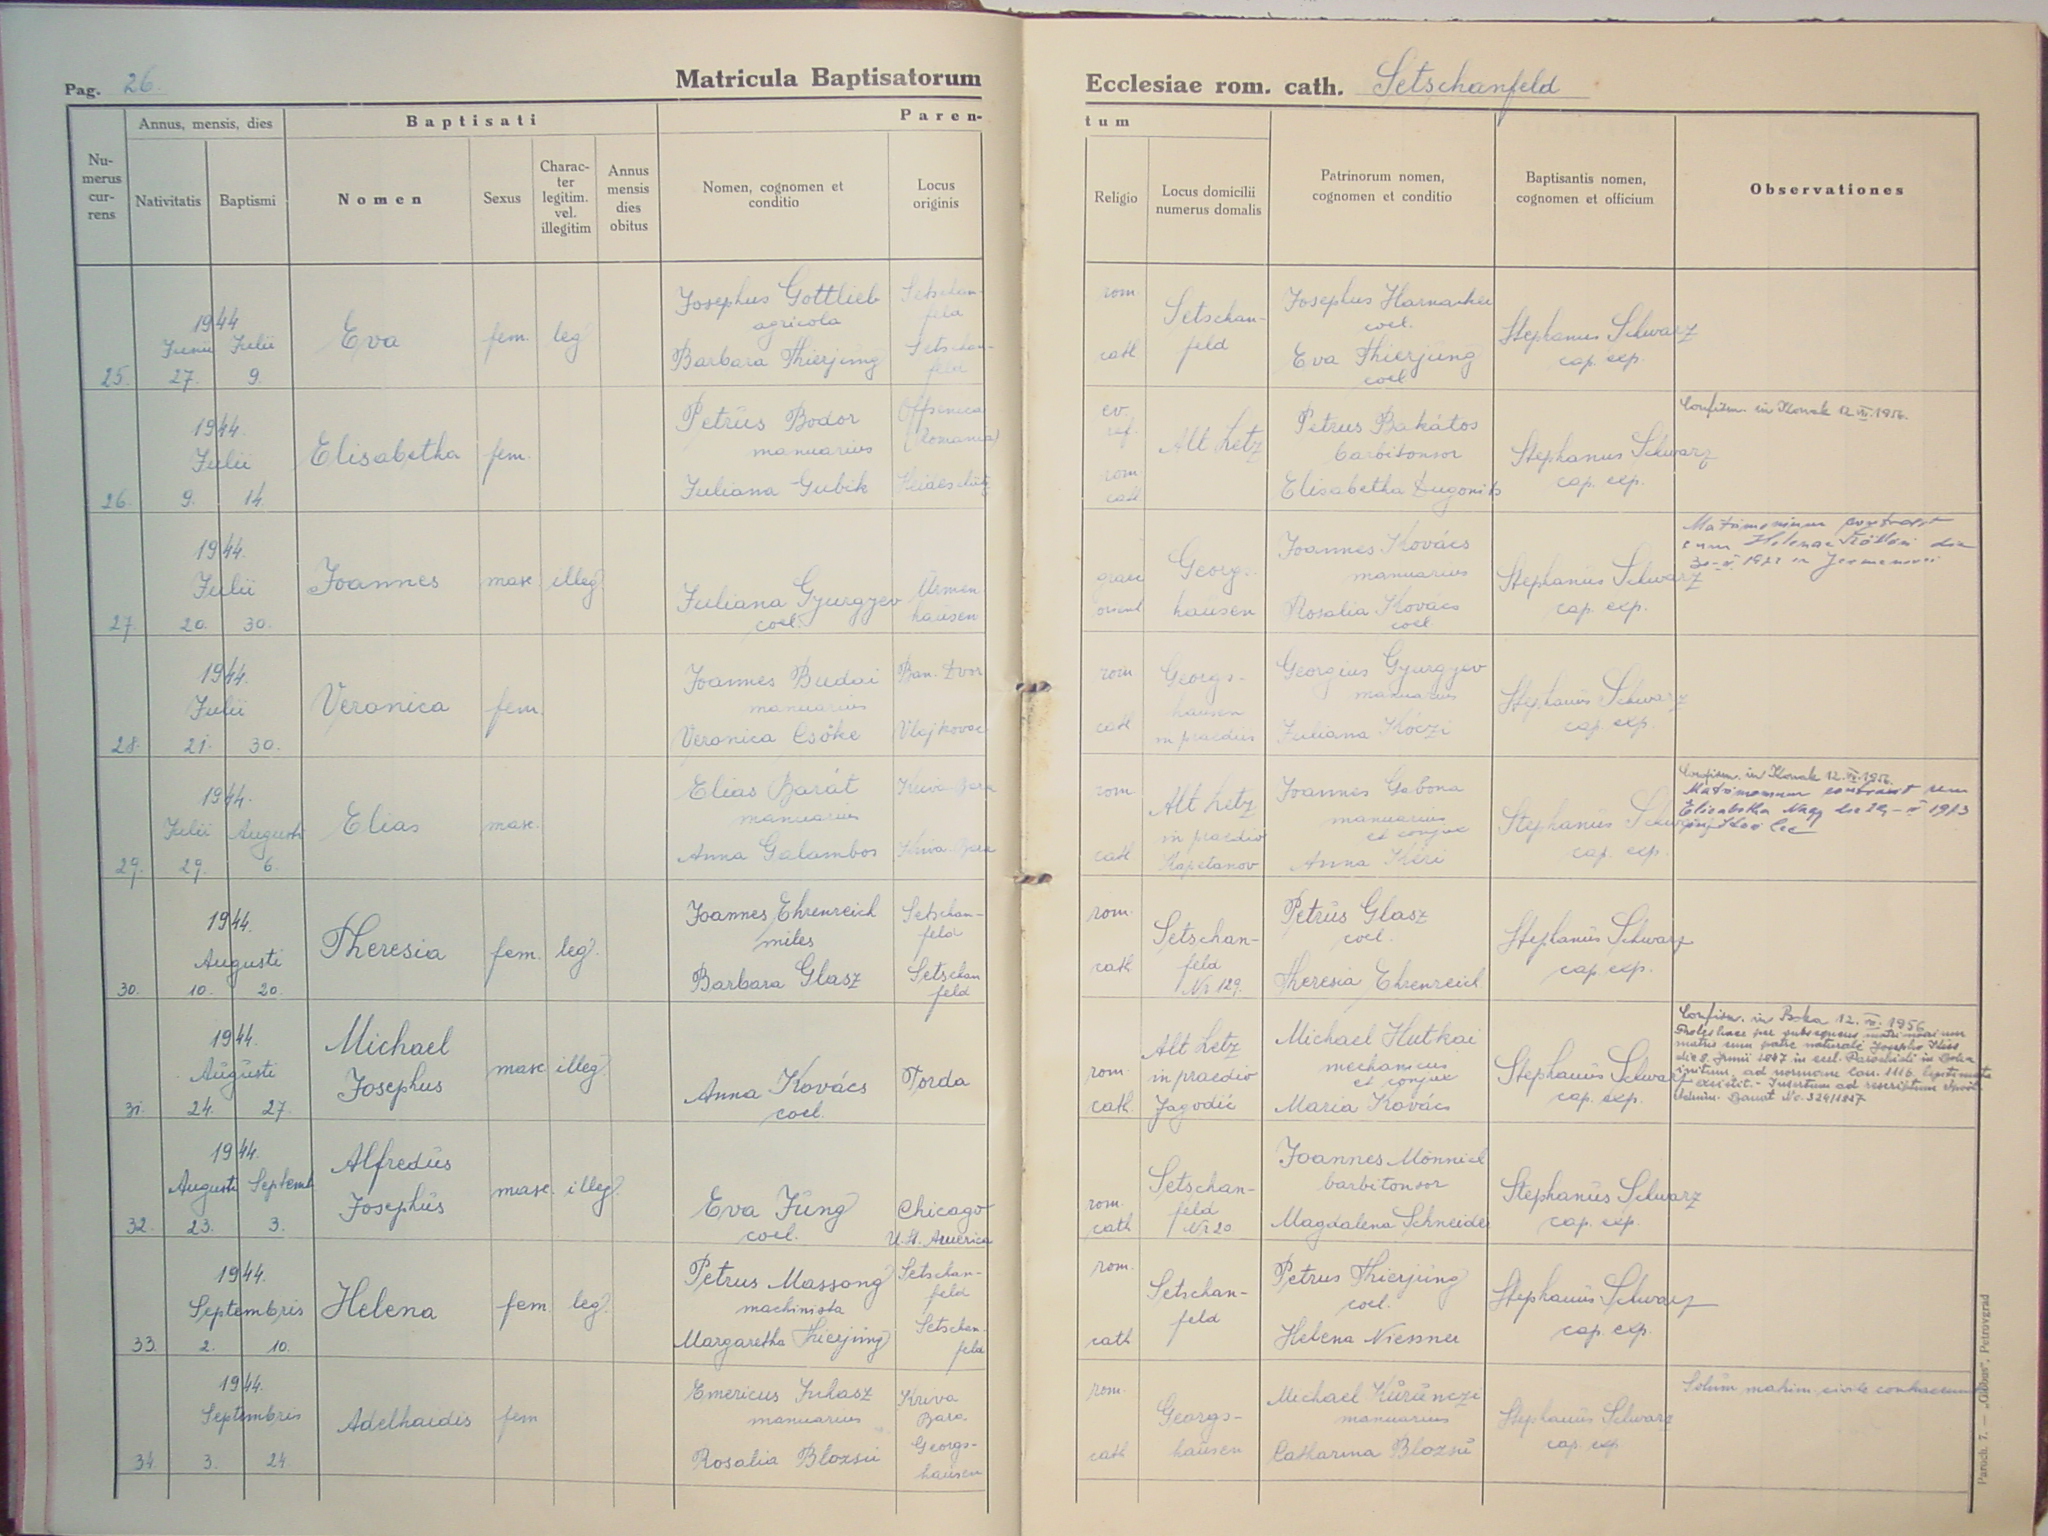 Pag. 26.
Matricula Baptisatorum
Ecclesiae rom. cath. Setschanfeld
Numerus currens
Annus, mensis, dies
Nativitatis
Baptismi
Baptisati
Nomen
Sexus
Charac-
ter
legitim.
vel.
illegitim
Annus
mensis
dies
obitus
Paren-
tum
Nomen, cognomen et
conditio
Locus
originis
Religio
Locus domicilii
numerus domalis
Patrinorum nomen,
cognomen et conditio
Baptisantis nomen,
cognomen et officium
Observationes
25.
1944
Junii 27.
Julii 9.
Eva
fem.
leg.
Josephus Gottlieb
agricola
Barbara Thierjüng
Setschan-
feld
Setschan-
feld
rom.
cath
Setschan-
feld
Josephus
coel.
Eva Thierjüng
coel
Stephanus Schwarz
cap. exp.
26.
1944.
Julii
9.
14.
Elisabetha
fem.
Petrus Bodor
manuarius
Juliana Gubik
Offsenica
(Romania)
Heideschütz
ev.
ref.
rom
cath
Alt Letz
Petrus Bakátos
barbitonsor
Elisabetha Dugonits
Stephanus Schwarz
cap. exp.
Confirm. in Konak 12.VI.1956.
27.
1944.
Julii
20.
30.
Joannes
masc
illeg.
Juliana Gyurgyev
coel.
Ürmen
hausen
graec
orient
Georgs-
hausen
Joannes Kovács
manuarius
Rosalia Kovács
coel.
Stephanus Schwarz
cap. exp.
Matrimonium contraxit
cum Helena
28.
1944.
Julii
21.
30.
Veronica
fem.
Joannes Budai
manuarius
Veronica Csőke
Ban. Dvor
Vlajkovac
rom
cath
Georgs-
hausen
in praediis
Georgius Gyurgyev
manuarius
Juliana Kóczi
Stephanus Schwarz
cap. exp.
29.
1944.
Julii
29.
Augusti
6.
Elias
masc.
Elias Barát
manuarius
Anna Galambos
Kriva Bara
Kriva Bara
rom
cath
Alt Letz
in praedio
Kapetanov
Joannes Gabona
manuarius
et conjux
Anna Kéri
Stephanus Schwarz
cap. exp.
Confirm. in Konak 12.VI.1956.
Matrimonium contraxit cum
Elisabetha Nagy
30.
1944.
Augusti
10.
20.
Theresia
fem.
leg.
Joannes Ehrenreich
miles
Barbara Glasz
Setschan-
feld
Setschan
feld
rom.
cath
Setschan-
feld
Nr 129.
Petrus Glasz
coel.
Theresia Ehrenreich
Stephanus Schwarz
cap. exp.
31.
1944.
Augusti
24.
27.
Michael
Josephus
masc
illeg.
Anna Kovács
coel.
Torda
rom.
cath.
Alt Letz
in praedio
Jagodić
Michael Hutkai
mechanicus
et conjux
Maria Kovács
Stephanus Schwarz
cap. exp.
Confirm. in Boka 12.VI.1956
matris cum patre naturali Josepho Kiss
32.
1944.
Augusti
23.
Septemb.
3.
Alfredus
Josephus
masc.
illeg.
Eva Jüng
coel.
Chicago
U.S. America
rom.
cath
Setschan-
feld
Nr 20
Joannes Mönnich
barbitonsor
Magdalena Schneider
Stephanus Schwarz
cap. exp.
33.
1944.
Septembris
2.
10.
Helena
fem.
leg.
Petrus Massong
machinista
Margaretha Thierjüng
Setschan-
feld
Setschan.
feld
rom.
cath
Setschan-
feld
Petrus Thierjüng
coel.
Helena Niessner
Stephanus Schwarz
cap. exp.
34.
1944.
Septembris
3.
24
Adelhaidis
fem
Emericus Juhasz
manuarius
Rosalia Blozsü
Kriva
Bara.
Georgs-
hausen
rom.
cath
Georgs-
hausen
Michael Kürünczi
manuarius
Catharina Blozsü
Stephanus Schwarz
cap. exp
Solum matrim. civile contraxerunt
Paroch. 7. — „Globus", Petrovgrad